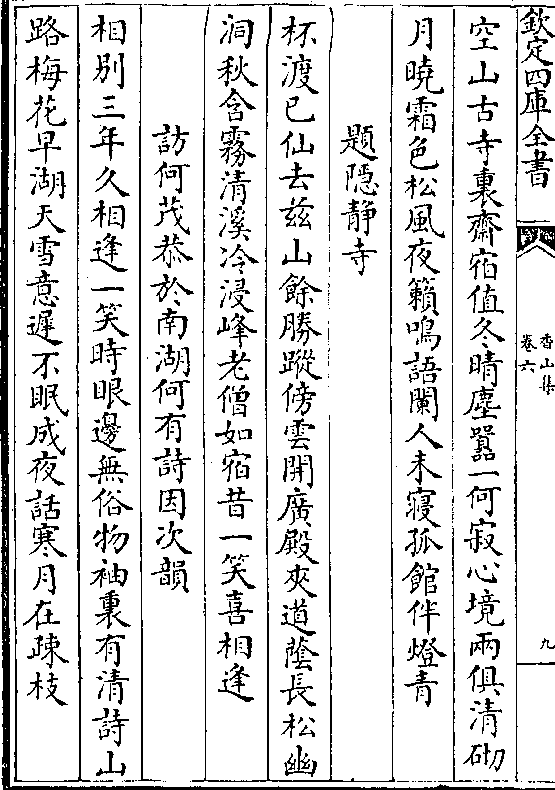 欽定四庫全書
香山集
卷六
九
空山古寺裏齋宿值冬晴塵囂一何寂心境兩俱清砌
月曉霜色松風夜籟鳴語闌人未寢孤館伴燈青
題隠靜寺
杯渡已仙去兹山餘勝蹤傍雲開廣殿夾道蔭長松幽
洞秋含霧清溪冷浸峰老僧如宿昔一笑喜相逢
訪何茂恭於南湖何有詩因次韻
相別三年久相逢一笑時眼邊無俗物袖裏有清詩山
路梅花早湖天雪意遲不眠成夜話寒月在疎枝